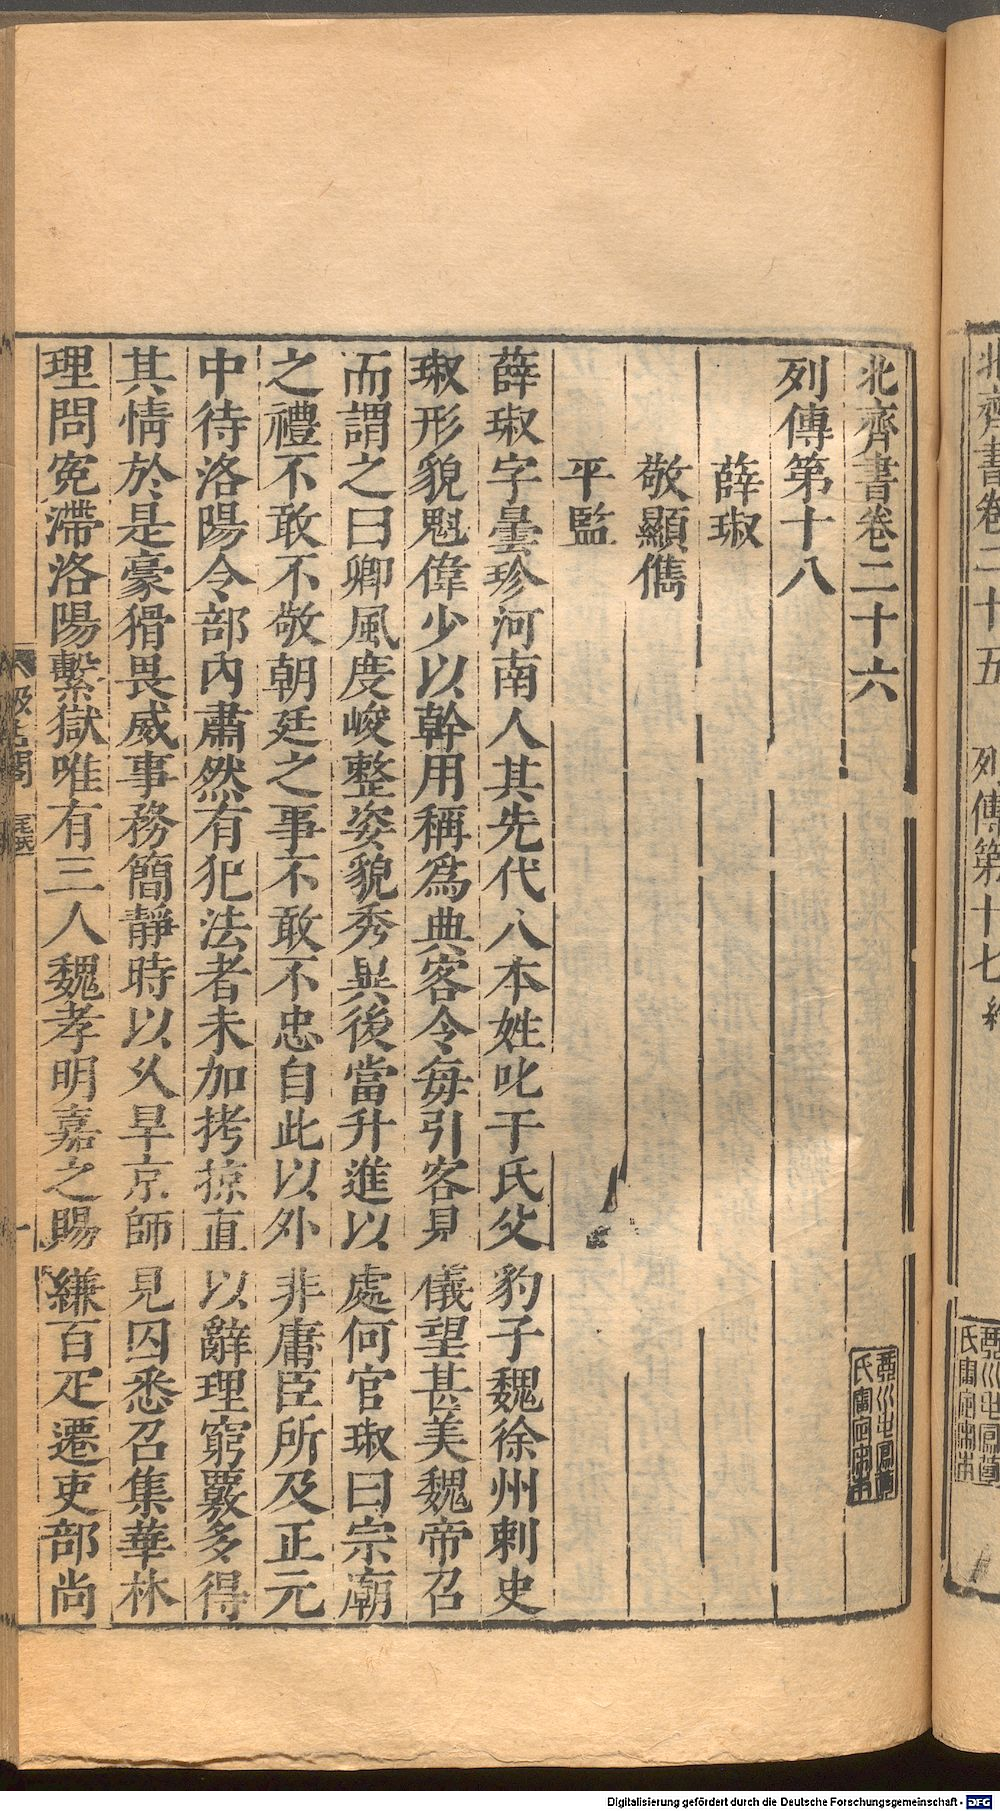 北齊書卷二十五 列傳第十七
北齊書卷二十六
列傳第十八
薛琡
敬顯儁
平鑒
薛琡字曇珍河南人其先代人本姓叱干氏父豹子魏徐州刺史
琡形貌魁偉少以幹用稱爲典客令每引客見儀望甚美魏帝召
而謂之曰卿風度峻整姿貌秀異後當升進以處何官琡曰宗廟
之禮不敢不敬朝廷之事不敢不忠自此以外非庸臣所及正元
中待洛陽令部內肅然有犯法者未加拷掠直以辭理窮覈多得
其情於是豪猾畏威事務簡靜時以久旱京師見囚悉召集華林
理問寃滯洛陽繫獄唯有三人魏孝明嘉之賜縑百疋遷吏部尚
Digitalisierung gefördert durch die Deutsche Forschungsgemeinschaft - DFG